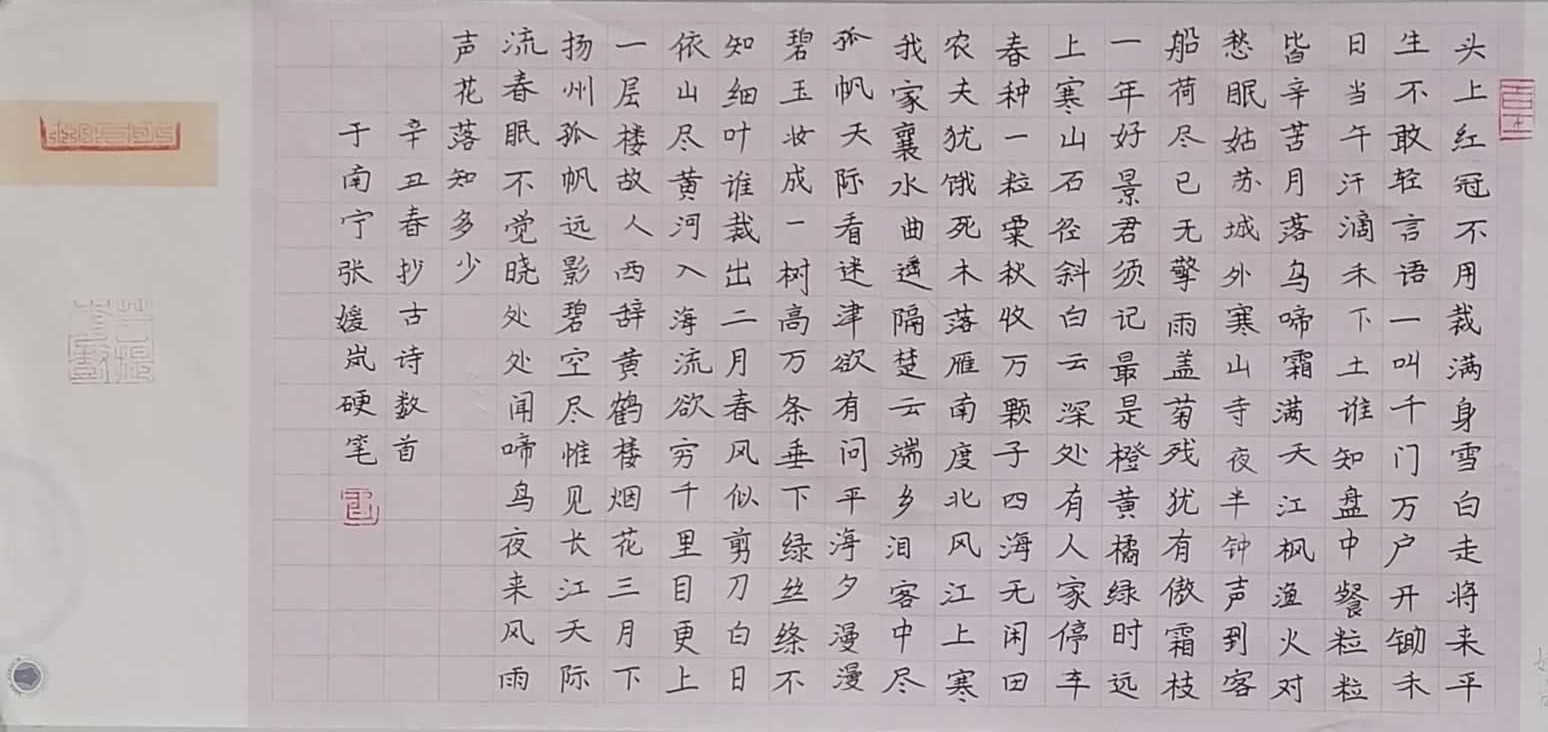 头上红冠不用裁满身雪白走将来平
生不敢轻言语一叫千门万户开锄禾
日当午汗滴禾下土谁知盘中餐粒粒
皆辛苦月落乌啼霜满天江枫渔火对
愁眠姑苏城外寒山寺夜半钟声到客
船荷尽已无擎雨盖菊残犹有傲霜枝
一年好景君须记最是橙黄橘绿时远
上寒山石径斜白云深处有人家停车
春种一粒粟秋收万颗子四海无闲田
农夫犹饿死木落雁南度北风江上寒
我家襄水曲遥隔楚云端乡泪客中尽
孤帆天际看迷津欲有问平海夕漫漫
碧玉妆成一树高万条垂下绿丝绦不
知细叶谁裁出二月春风似剪刀白日
依山尽黄河入海流欲穷千里目更上
一层楼故人西辞黄鹤楼烟花三月下
扬州孤帆远影碧空尽惟见长江天际
流春眠不觉晓处处闻啼鸟夜来风雨
声花落知多少
辛丑春抄古诗数首
于南宁张媛岚硬笔